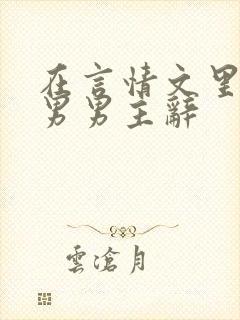 在言情文里
男男主辭
雲滄月